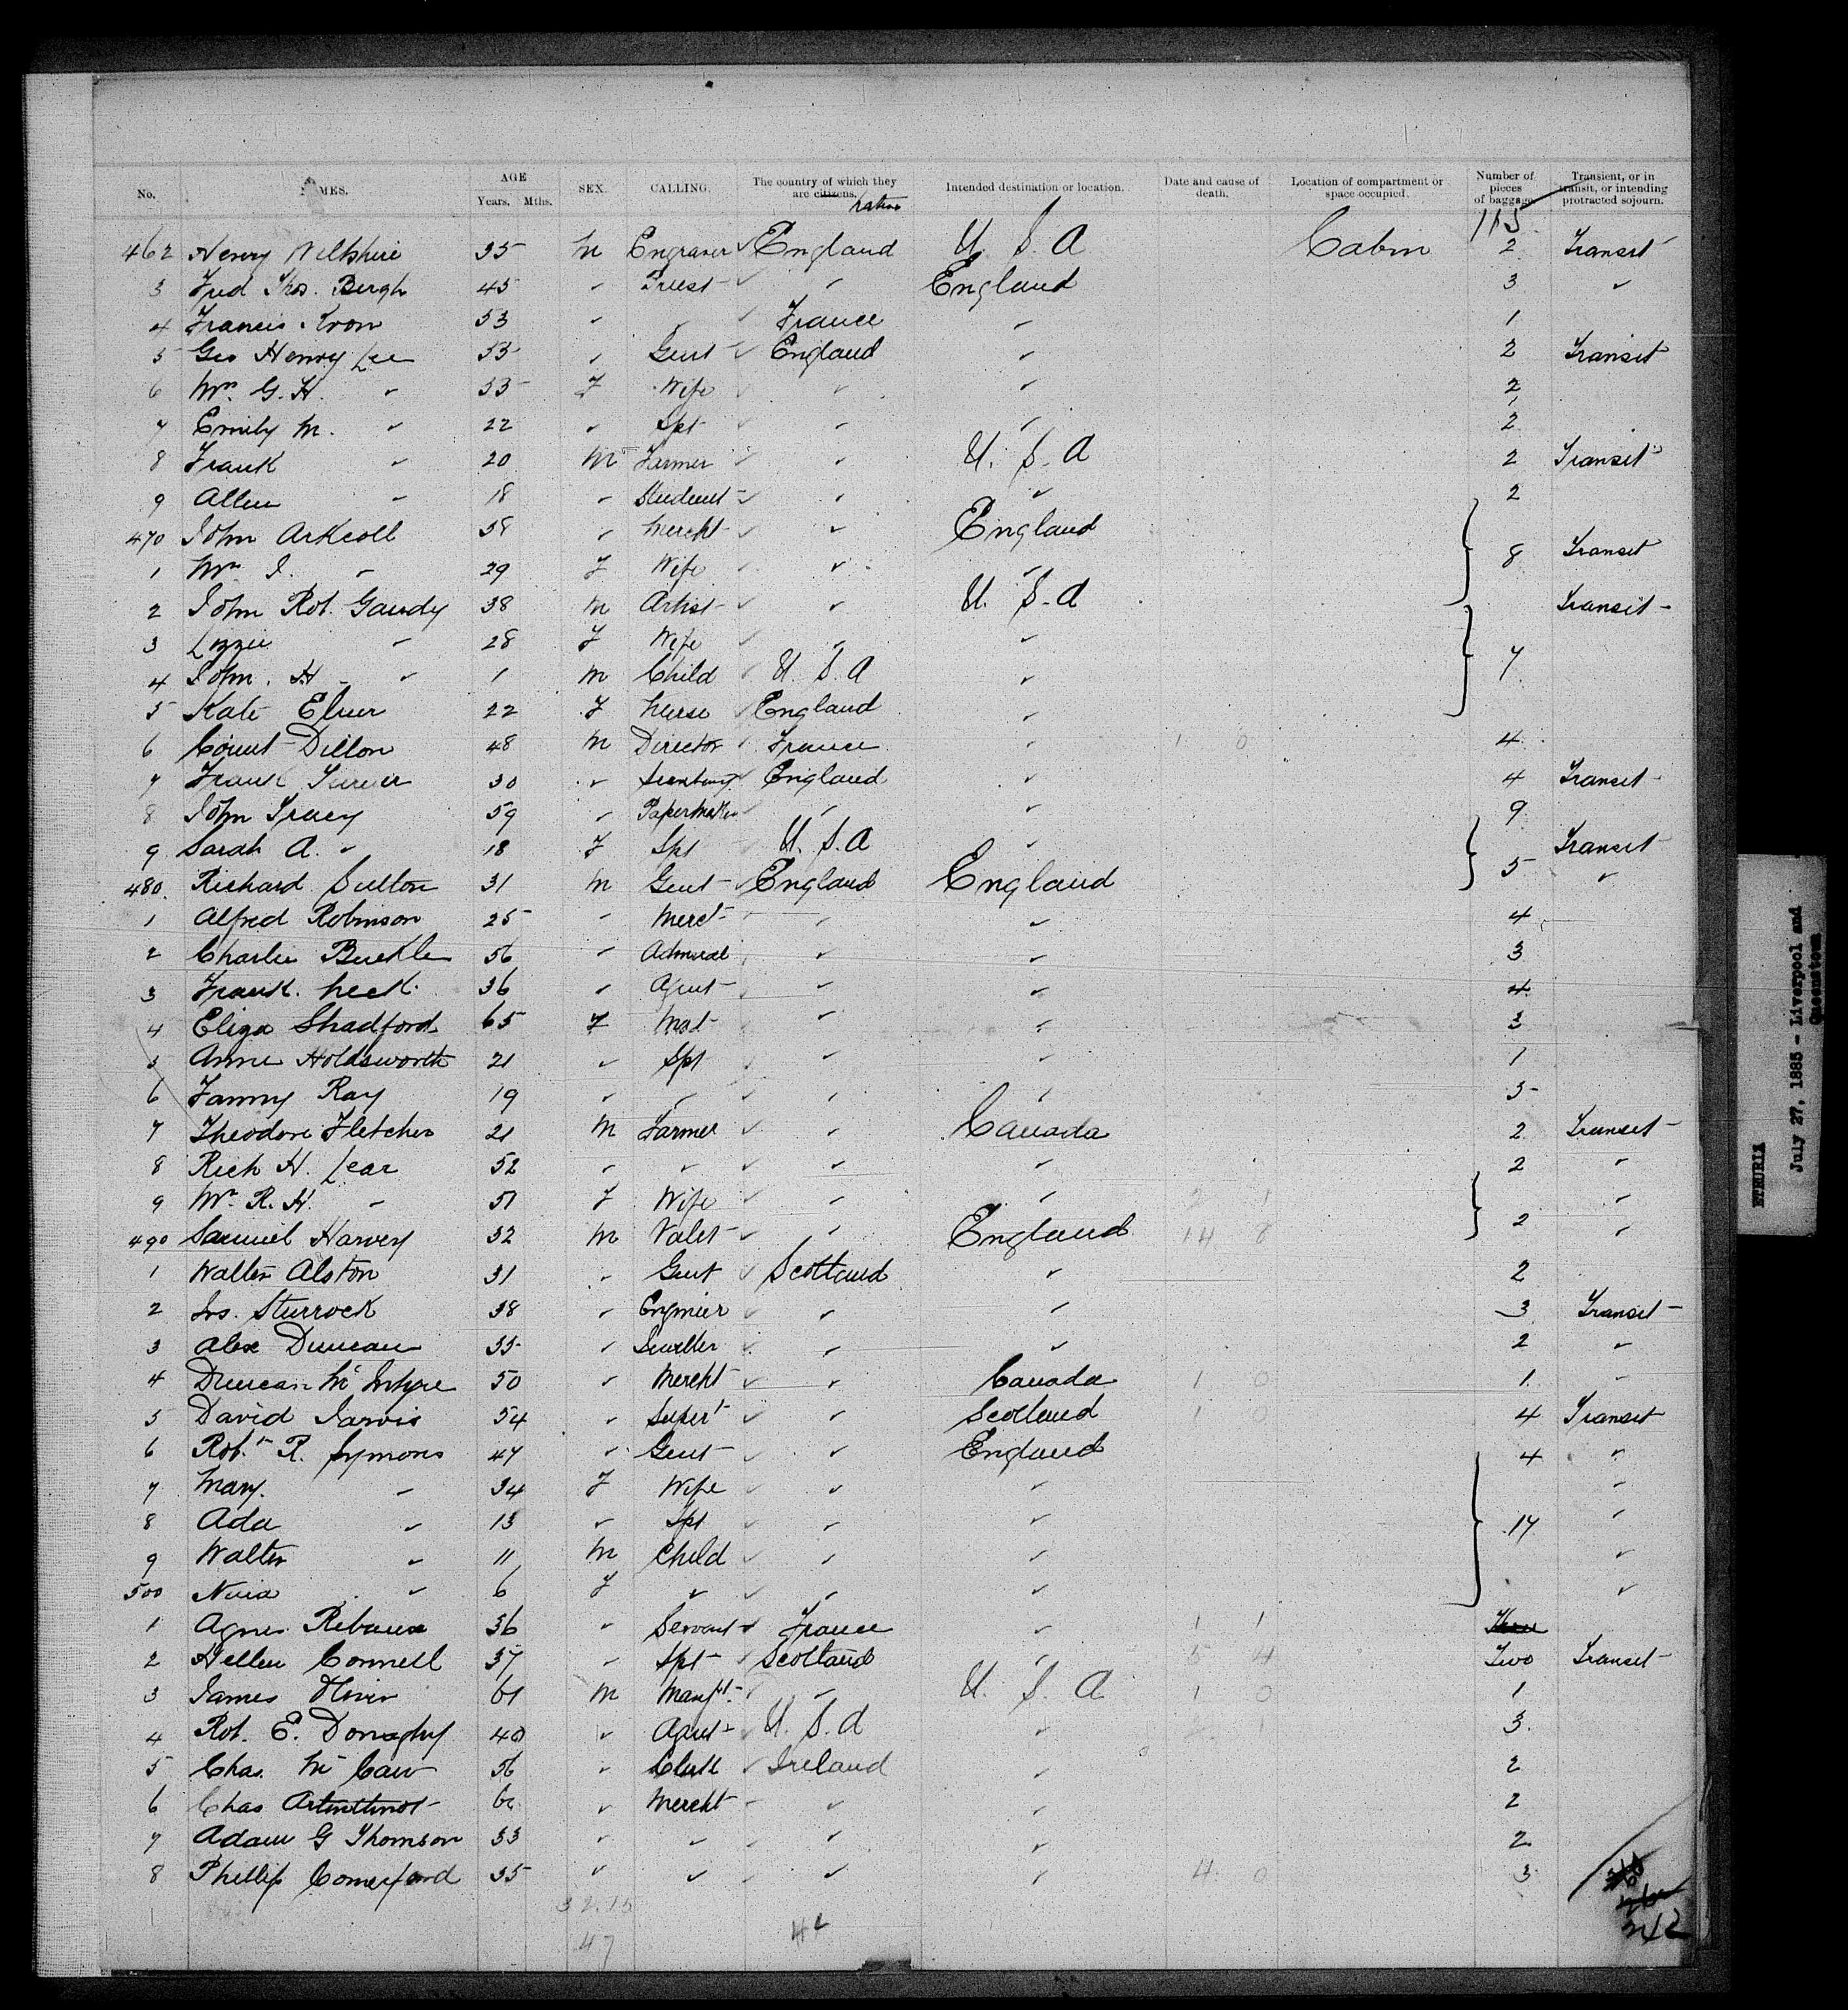 No. NAMES. AGE Years. Mths. SEX. CALLING. The country of which they are citizens. Intended destination or location. Date and cause of death. Location of compartment or space occupied. Number of pieces of baggage. Transient, or in transit, or intending protracted sojourn.
native
115
462 Henry Wiltshire 35 M Engraver England U.S.A Cabin 2 Transit
3 Fred Thos. Bergh 45 " Priest " England 3 "
4 Francis 53 " " France " 1
5 Geo Henry Lee 55 " Gent England " 2 Transit
6 Mrs. G. H. " 55 F Wife " " 2
7 Emily M. " 22 " Spt " " 2
8 Frank " 20 M Farmer " U.S.A 2 Transit
9 Allen " 18 " Student " " 2
470 John Arkcoll 38 " Mercht " England 8 Transit
1 Mrs J. " 29 F Wife " "
2 John Rob. Gaudy 38 M Artist " U.S.A Transit
3 Lizzie " 28 F Wife " " 7
4 John. H " 1 M Child U.S.A "
5 Kate 22 F Nurse England "
6 Count Dillon 48 M Director France " 1 0 4
7 Frank 30 " England " 4 Transit
8 John Tracy 59 " Papermaker " " 9
9 Sarah A. " 18 F Spt U.S.A " 5 Transit
480. Richard Sutton 31 M Gent England England "
1 Alfred Robinson 25 " Mercht " " 4
2 Charlie Buckle 56 " Admiral " " 3
3 Frank. Neck 36 " Agent " " 4
4 Eliza Shadford 65 F Mat " " 3
5 Anne Holdsworth 21 " Spt " " 1
6 Fanny Ray 19 " " " " 5
7 Theodore Fletcher 21 M Farmer " Canada 2 Transit
8 Rich H. Lear 52 " " " " 2 "
9 Mrs R. H. " 51 F Wife " " "
490 Samuel Harvey 32 M Valet " England 14 8 2 "
1 Walter Alston 31 " Gent Scotland " 2
2 Jas. Sturrock 38 " Enginier " " 3 Transit
3 Alex Duncan 35 " " " 2 "
4 Duncan McIntyre 50 " Mercht " Canada 1 0 1 "
5 David Jarvis 54 " Supert " Scotland 1 0 4 Transit
6 Robt R. Symons 47 " Gent " England 4 "
7 Mary. " 34 F Wife " " "
8 Ada " 13 " Spt " " 17 "
9 Walter " 11 M Child " " "
500 Nina " 6 F " " " "
1 Agnes 36 " Servant France " 1 1 Three
2 Hellen Connell 37 " Spt Scotland " 5 4 Two Transit
3 James Oliver 61 M Manft. " U.S.A 1 0 1
4 Rob. E. Donaghy 40 " Agent U.S.A " 3.
5 Chas. Mc Caw 56 " Clerk Ireland " 2
6 Chas " Mercht " " 2
7 Adam G Thomson 33 " " " " 2
8 Phillip Comerford 35 " " " " 4 0 3
32.15
47
42
ETRURIA
July 27, 1885 - Liverpool and Queenstown